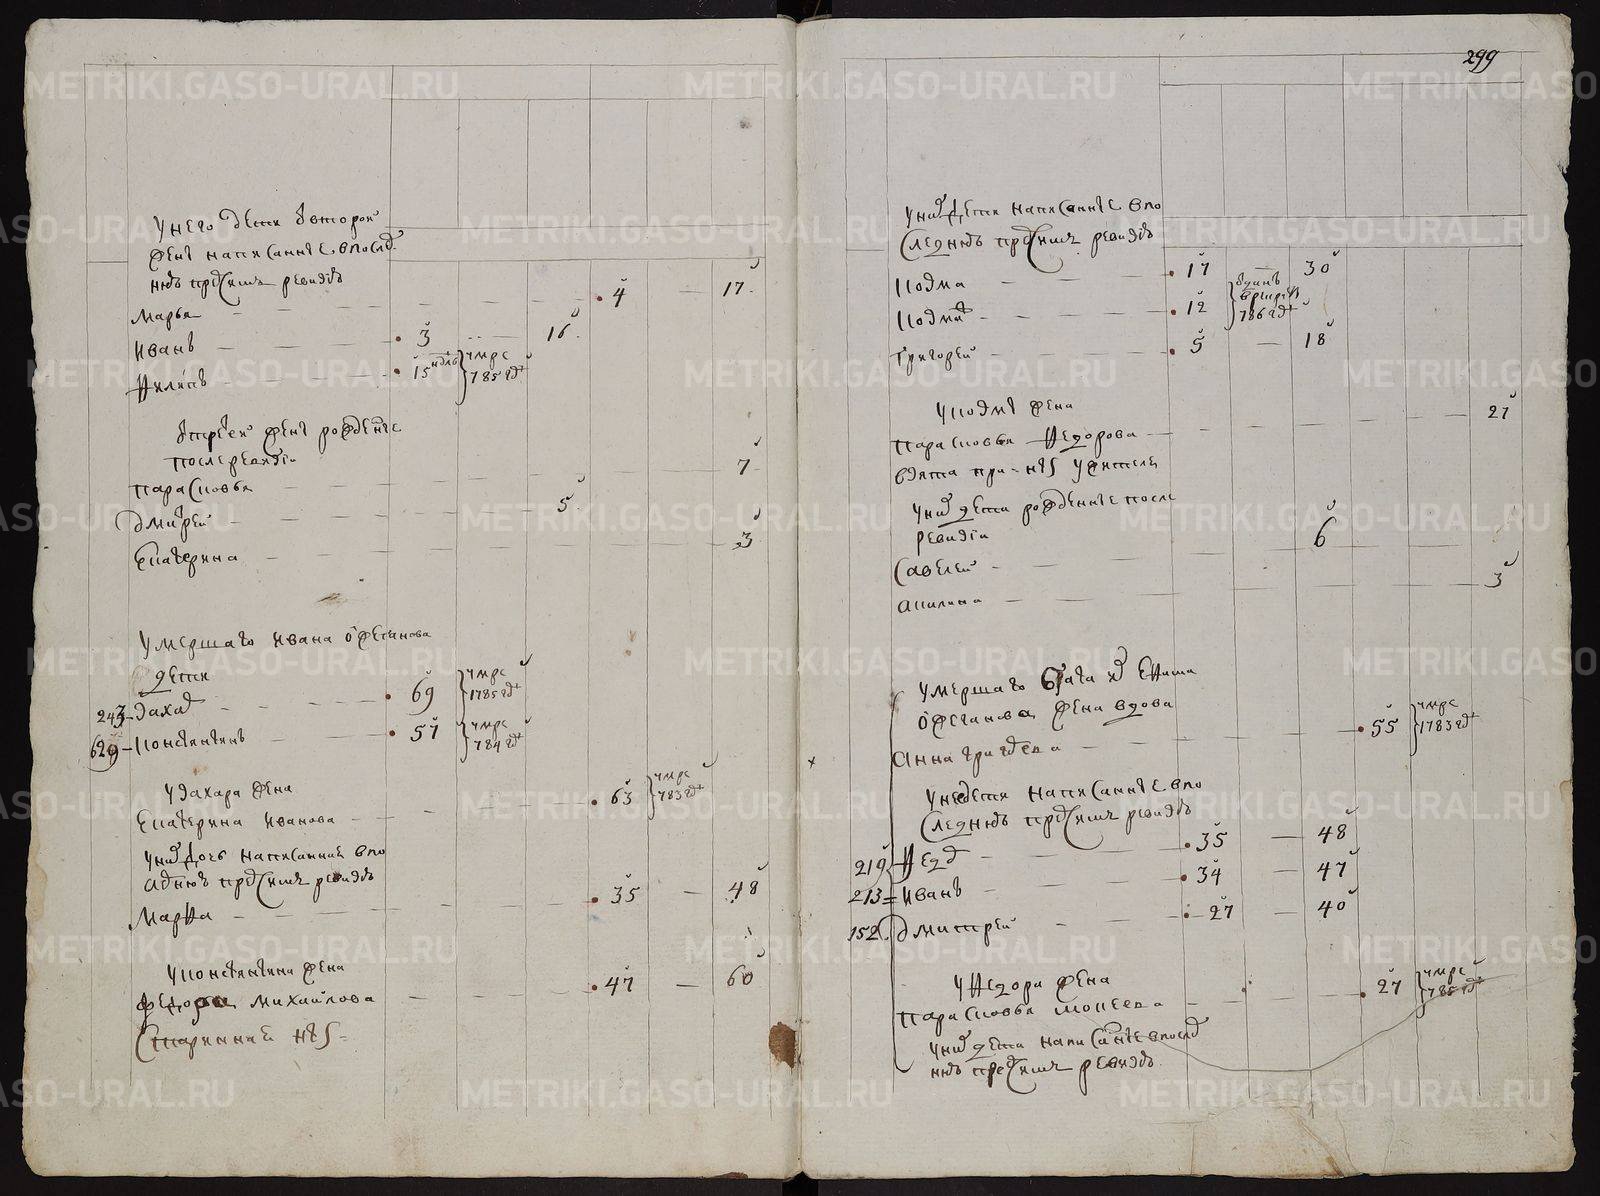 299
У него дети от второй
жены написанные в послед
нюю пред сим ревизию
Марья 4 17
Иванъ 3 16
Филипъ 15 недель умре 785 год
от третей жены рожденые
после ревизии
Парасковья 7
Дмитрей 5
Екатерина 3
Умершаго Ивана Ожеганова
дети
243 Захар 69 умре 1785 год
629 Констентинъ 51 умре 784 год
У Захара жена
Екатерина Иванова 63 умре 783 год
У них дочь написанная в по
следнюю пред сим ревизию
Марфа 35 48
У Констентина жена
Федора Михайлова 47 60
Старинная
У них дети написанные в по
следнюю пред сим ревизию
Козма 17 30
Козма 12 отданъ в рекруты 786 год
Григорей 5 18
У Козмы жена
Парасковья Федорова 21
взята
У них дети рожденные после
ревизии
Савелей 6
Акилина 3
Умершаго брата их
Ожеганова жена вдова
Анна Григорьева 55 умре 1783 год
У нее дети написанные в по
следнюю пред сим ревизию
219 Федор 35 48
213 Иванъ 34 47
152 Дмитрей 27 40
У Федора жена
Парасковья Мокеева 27 умре 1785 год
У них дети написанные в послед
нюю пред сим ревизию
METRIKI.GASO-URAL.RU